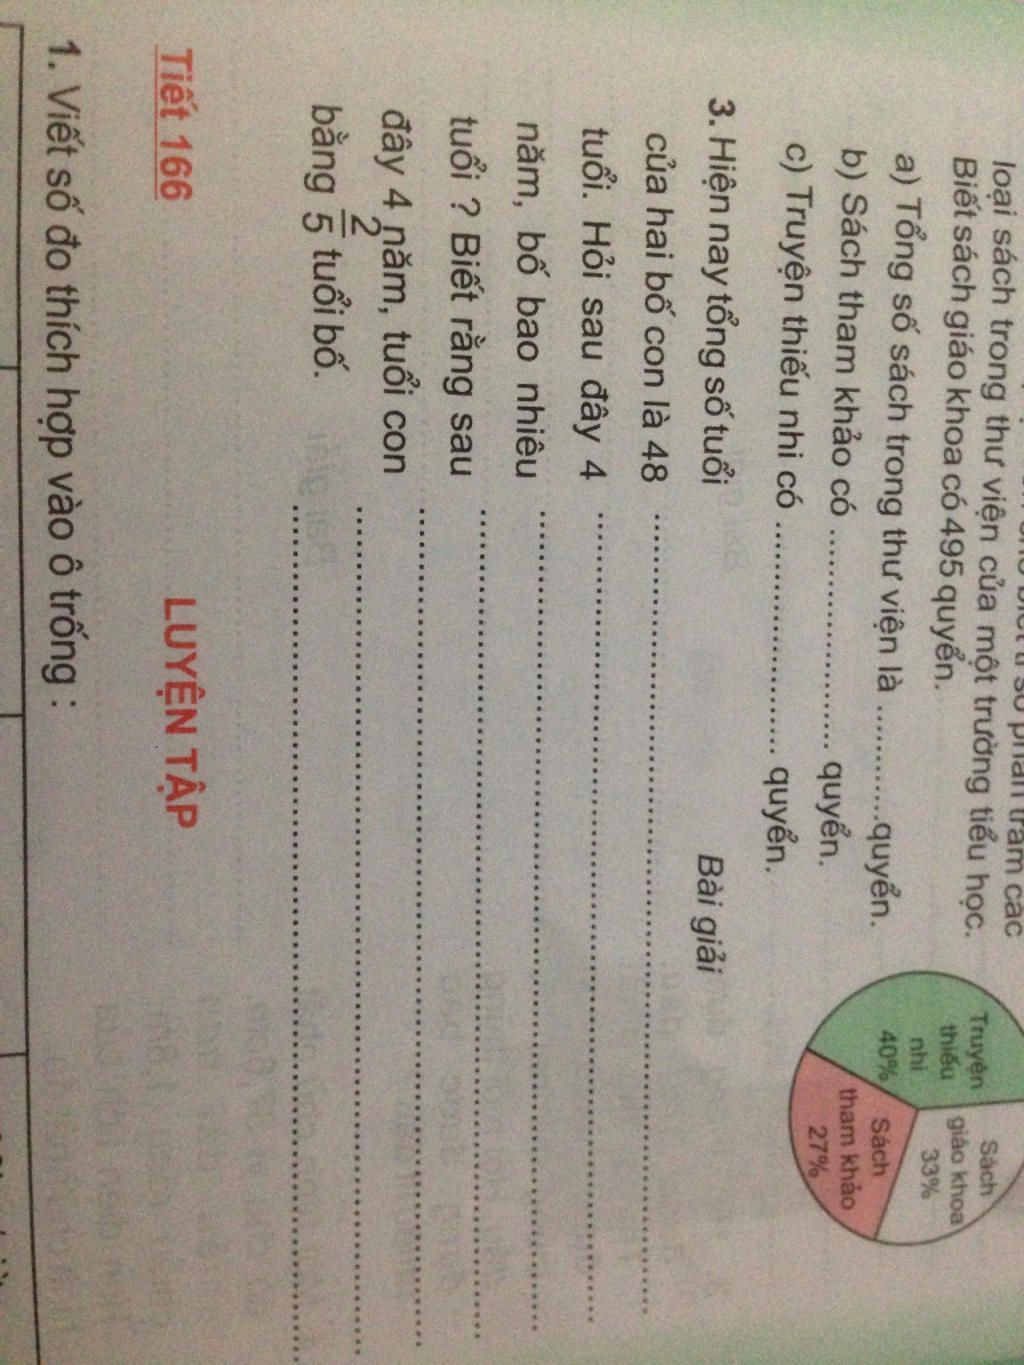 số phần trăm các
loại sách trong thư viện của một trường tiểu học.
Biết sách giáo khoa có 495 quyển.
a) Tổng số sách trong thư viện là ............quyển.
b) Sách tham khảo có ........................ quyển.
c) Truyện thiếu nhi có ........................ quyển.
Truyện
thiếu
nhi
40%
Sách
giáo khoa
33%
Sách
tham khảo
27%
3. Hiện nay tổng số tuổi
của hai bố con là 48
tuổi. Hỏi sau đây 4
năm, bố bao nhiêu
tuổi ? Biết rằng sau
đây 4 năm, tuổi con
bằng 2/5 tuổi bố.
Bài giải
Tiết 166
LUYỆN TẬP
1. Viết số đo thích hợp vào ô trống :